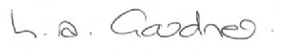 L. A. Gardner.